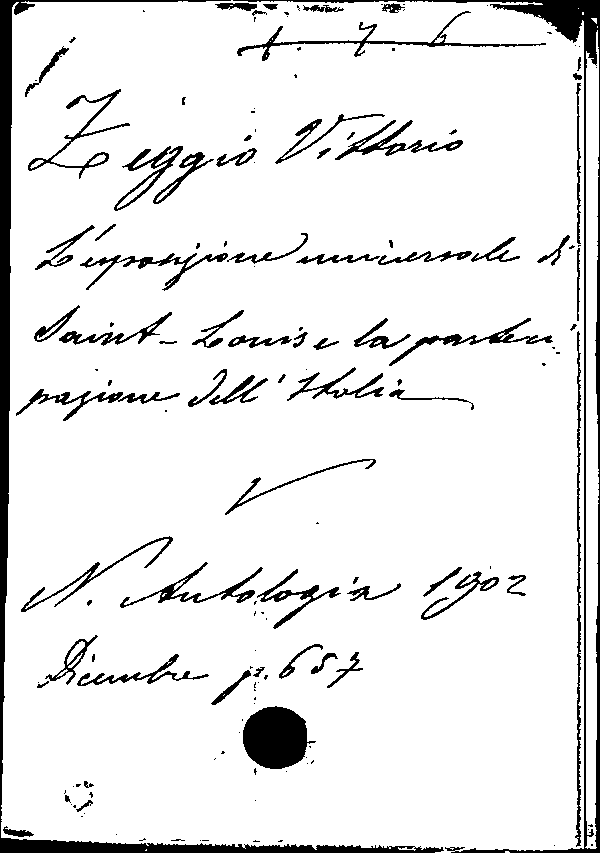 1. 7. 6
Zeggio Vittorio
L'esposizione universale di
Saint-Louis e la parteci
pazione dell'Italia
N. Antologia 1902
Dicembre p. 657